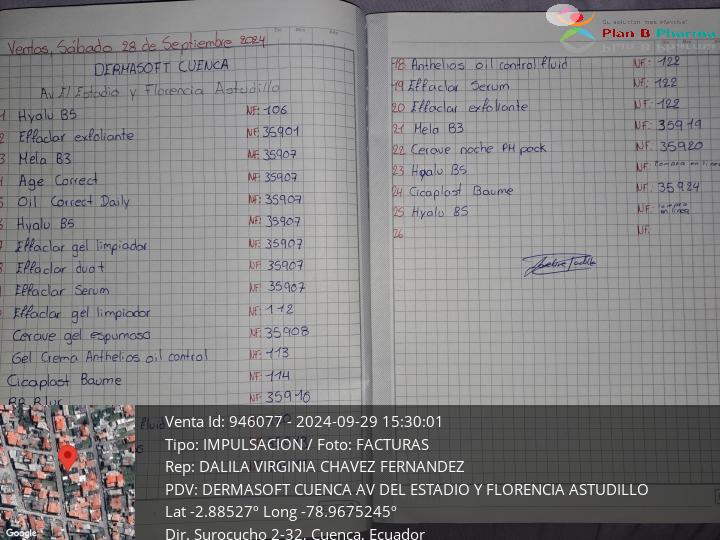 Su solución más efectiva!
Plan B Pharma
Ventas, Sábado 28 de Septiembre 2024
DERMASOFT CUENCA
Av El Estadio y Florencia Astudillo
1 Hyalu B5 NF: 106
2 Effaclar exfoliante NF: 35901
3 Mela B3 NF: 35907
Age Correct NF: 35907
Oil Correct Daily NF: 35907
Hyalu B5 NF: 35907
Effaclar gel limpiador NF: 35907
Effaclar duo+ NF: 35907
Effaclar Serum NF: 35907
Effaclar gel limpiador NF: 112
Cerave gel espumoso NF: 35908
Gel Crema Anthelios oil control NF: 113
Cicaplast Baume NF: 114
BB Blur NF: 35910
fluid
18 Anthelios oil control fluid NF: 122
19 Effaclar Serum NF: 122
20 Effaclar exfoliante NF: 122
21 Mela B3 NF: 35919
22 Cerave noche PH pack NF: 35920
23 Hyalu B5 NF: Compra en linea
24 Cicaplast Baume NF: 35924
25 Hyalu B5 NF: Compra en linea
26 NF:
Venta Id: 946077 - 2024-09-29 15:30:01
Tipo: IMPULSACION / Foto: FACTURAS
Rep: DALILA VIRGINIA CHAVEZ FERNANDEZ
PDV: DERMASOFT CUENCA AV DEL ESTADIO Y FLORENCIA ASTUDILLO
Lat -2.88527° Long -78.9675245°
Dir. Surocucho 2-32, Cuenca, Ecuador
Google